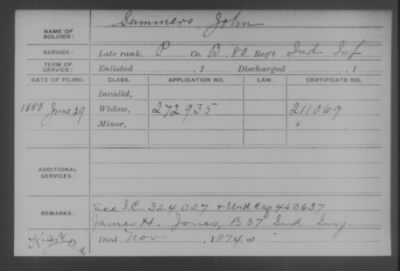 Summers, John
NAME OF SOLDIER:
SERVICE: Late rank, P Co. B, 80 Reg't Ind Inf
TERM OF SERVICE: Enlisted , 1 Discharged , 1
DATE OF FILING. CLASS. APPLICATION NO. LAW. CERTIFICATE NO.
Invalid,
1880 June 29 Widow, 272935 211069
Minor, "
ADDITIONAL SERVICES:
REMARKS: See I.C. 324 027 & Wid 460637
James H. Jones, B 37" Ind
Died Nov , 1874, at